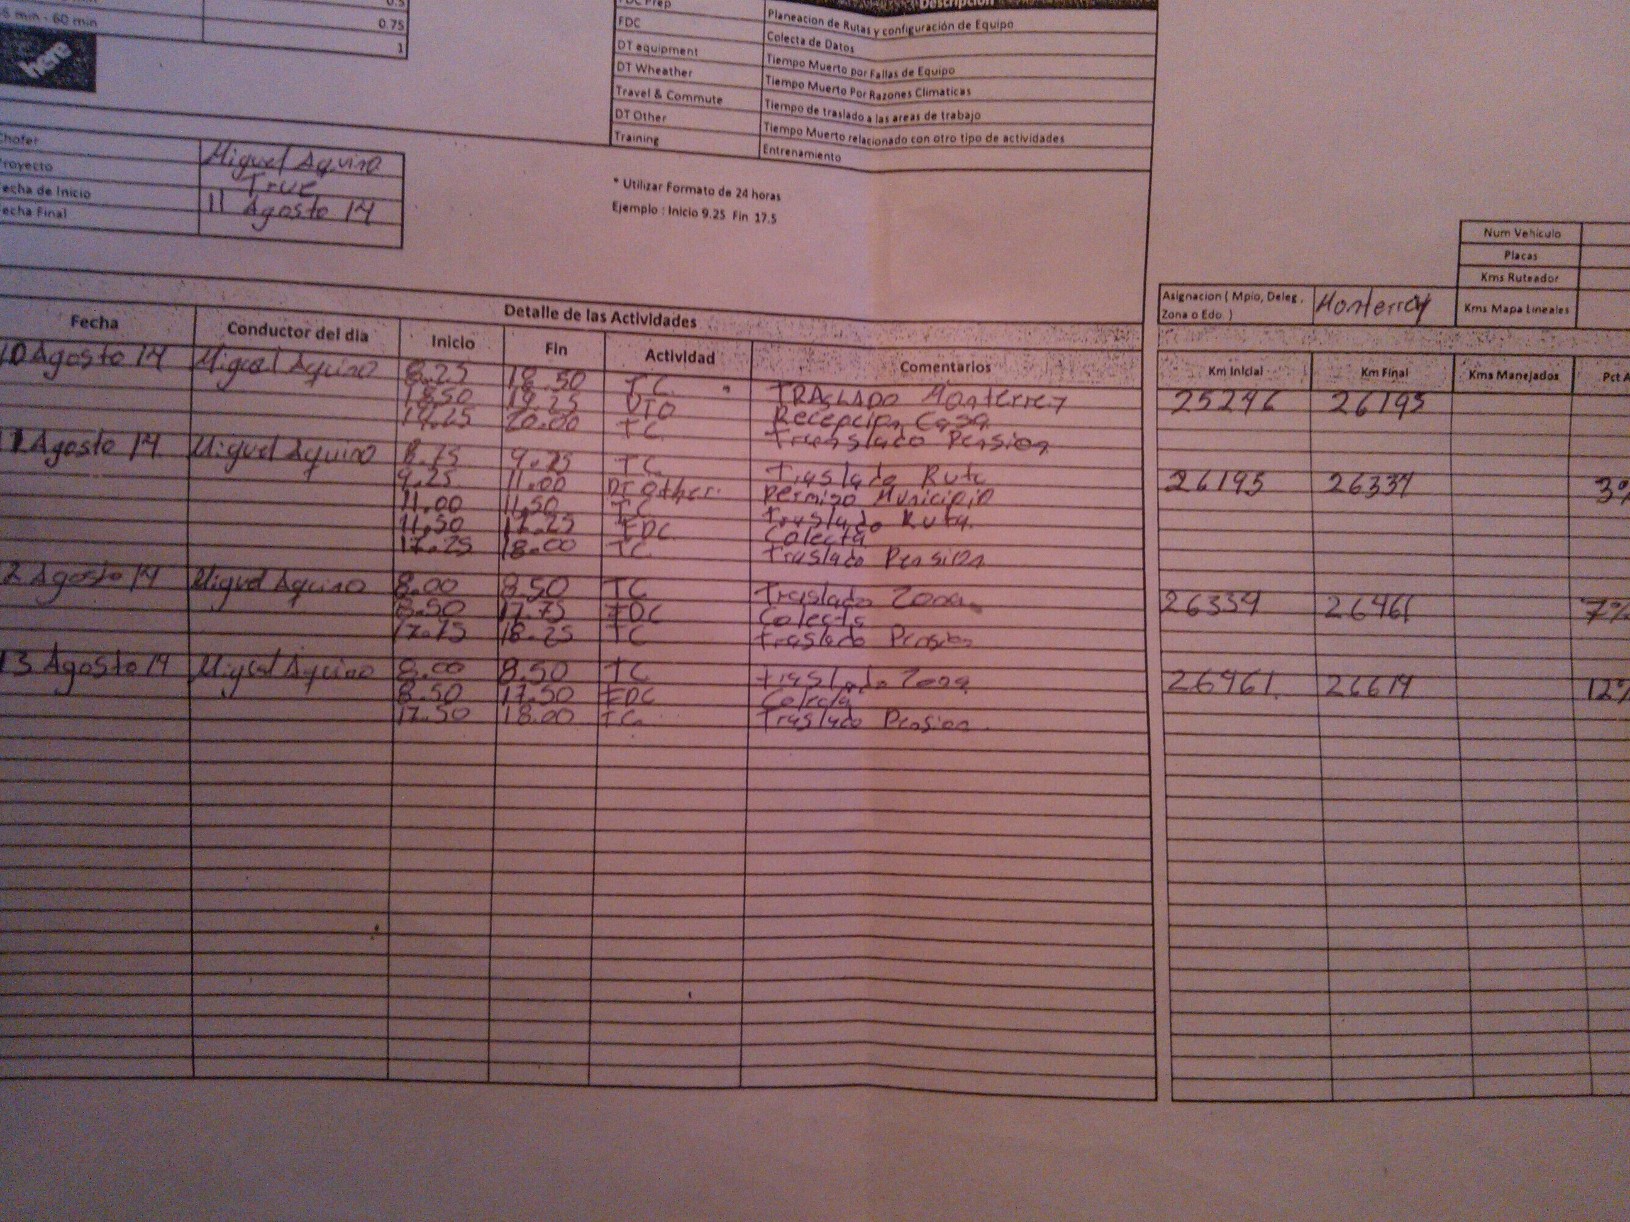 0.5
5 min - 60 min 0.75
1
here
Descripción
FDC Prep Planeacion de Rutas y configuración de Equipo
FDC Colecta de Datos
DT equipment Tiempo Muerto por Fallas de Equipo
DT Wheather Tiempo Muerto Por Razones Climaticas
Travel & Commute Tiempo de traslado a las areas de trabajo
DT Other Tiempo Muerto relacionado con otro tipo de actividades
Training Entrenamiento
Chofer Miguel Aquino
Proyecto True
Fecha de Inicio 11 Agosto 14
Fecha Final
* Utilizar Formato de 24 horas
Ejemplo : Inicio 9.25 Fin 17.5
Num Vehiculo
Placas
Kms Ruteador
Kms Mapa Lineales
Asignacion ( Mpio, Deleg, Zona o Edo. ) Monterrey
Detalle de las Actividades
Fecha Conductor del dia Inicio Fin Actividad Comentarios Km Inicial Km Final Kms Manejados Pct
10 Agosto 14 Miguel Aquino 8.25 18.50 TC TRASLADO Monterrey 25246 26195
18.50 19.25 DTO Recepcion Casa
19.25 20.00 TC Translado Pension
11 Agosto 14 Miguel Aquino 8.75 9.25 TC Traslado Ruta 26195 26334 3%
9.25 11.00 DT Other. Permiso Municipio
11.00 11.50 TC Traslado Ruta.
11.50 17.25 FDC Colecta
17.25 18.00 TC Traslado Pension
2 Agosto 14 Miguel Aquino 8.00 8.50 TC Traslado Zona. 26334 26461 7%
8.50 17.75 FDC Colecta
17.75 18.25 TC Traslado Pension
13 Agosto 14 Miguel Aquino 8.00 8.50 TC Traslado Zona 26461 26614 12%
8.50 17.50 FDC Colecta
17.50 18.00 TC Traslado Pension